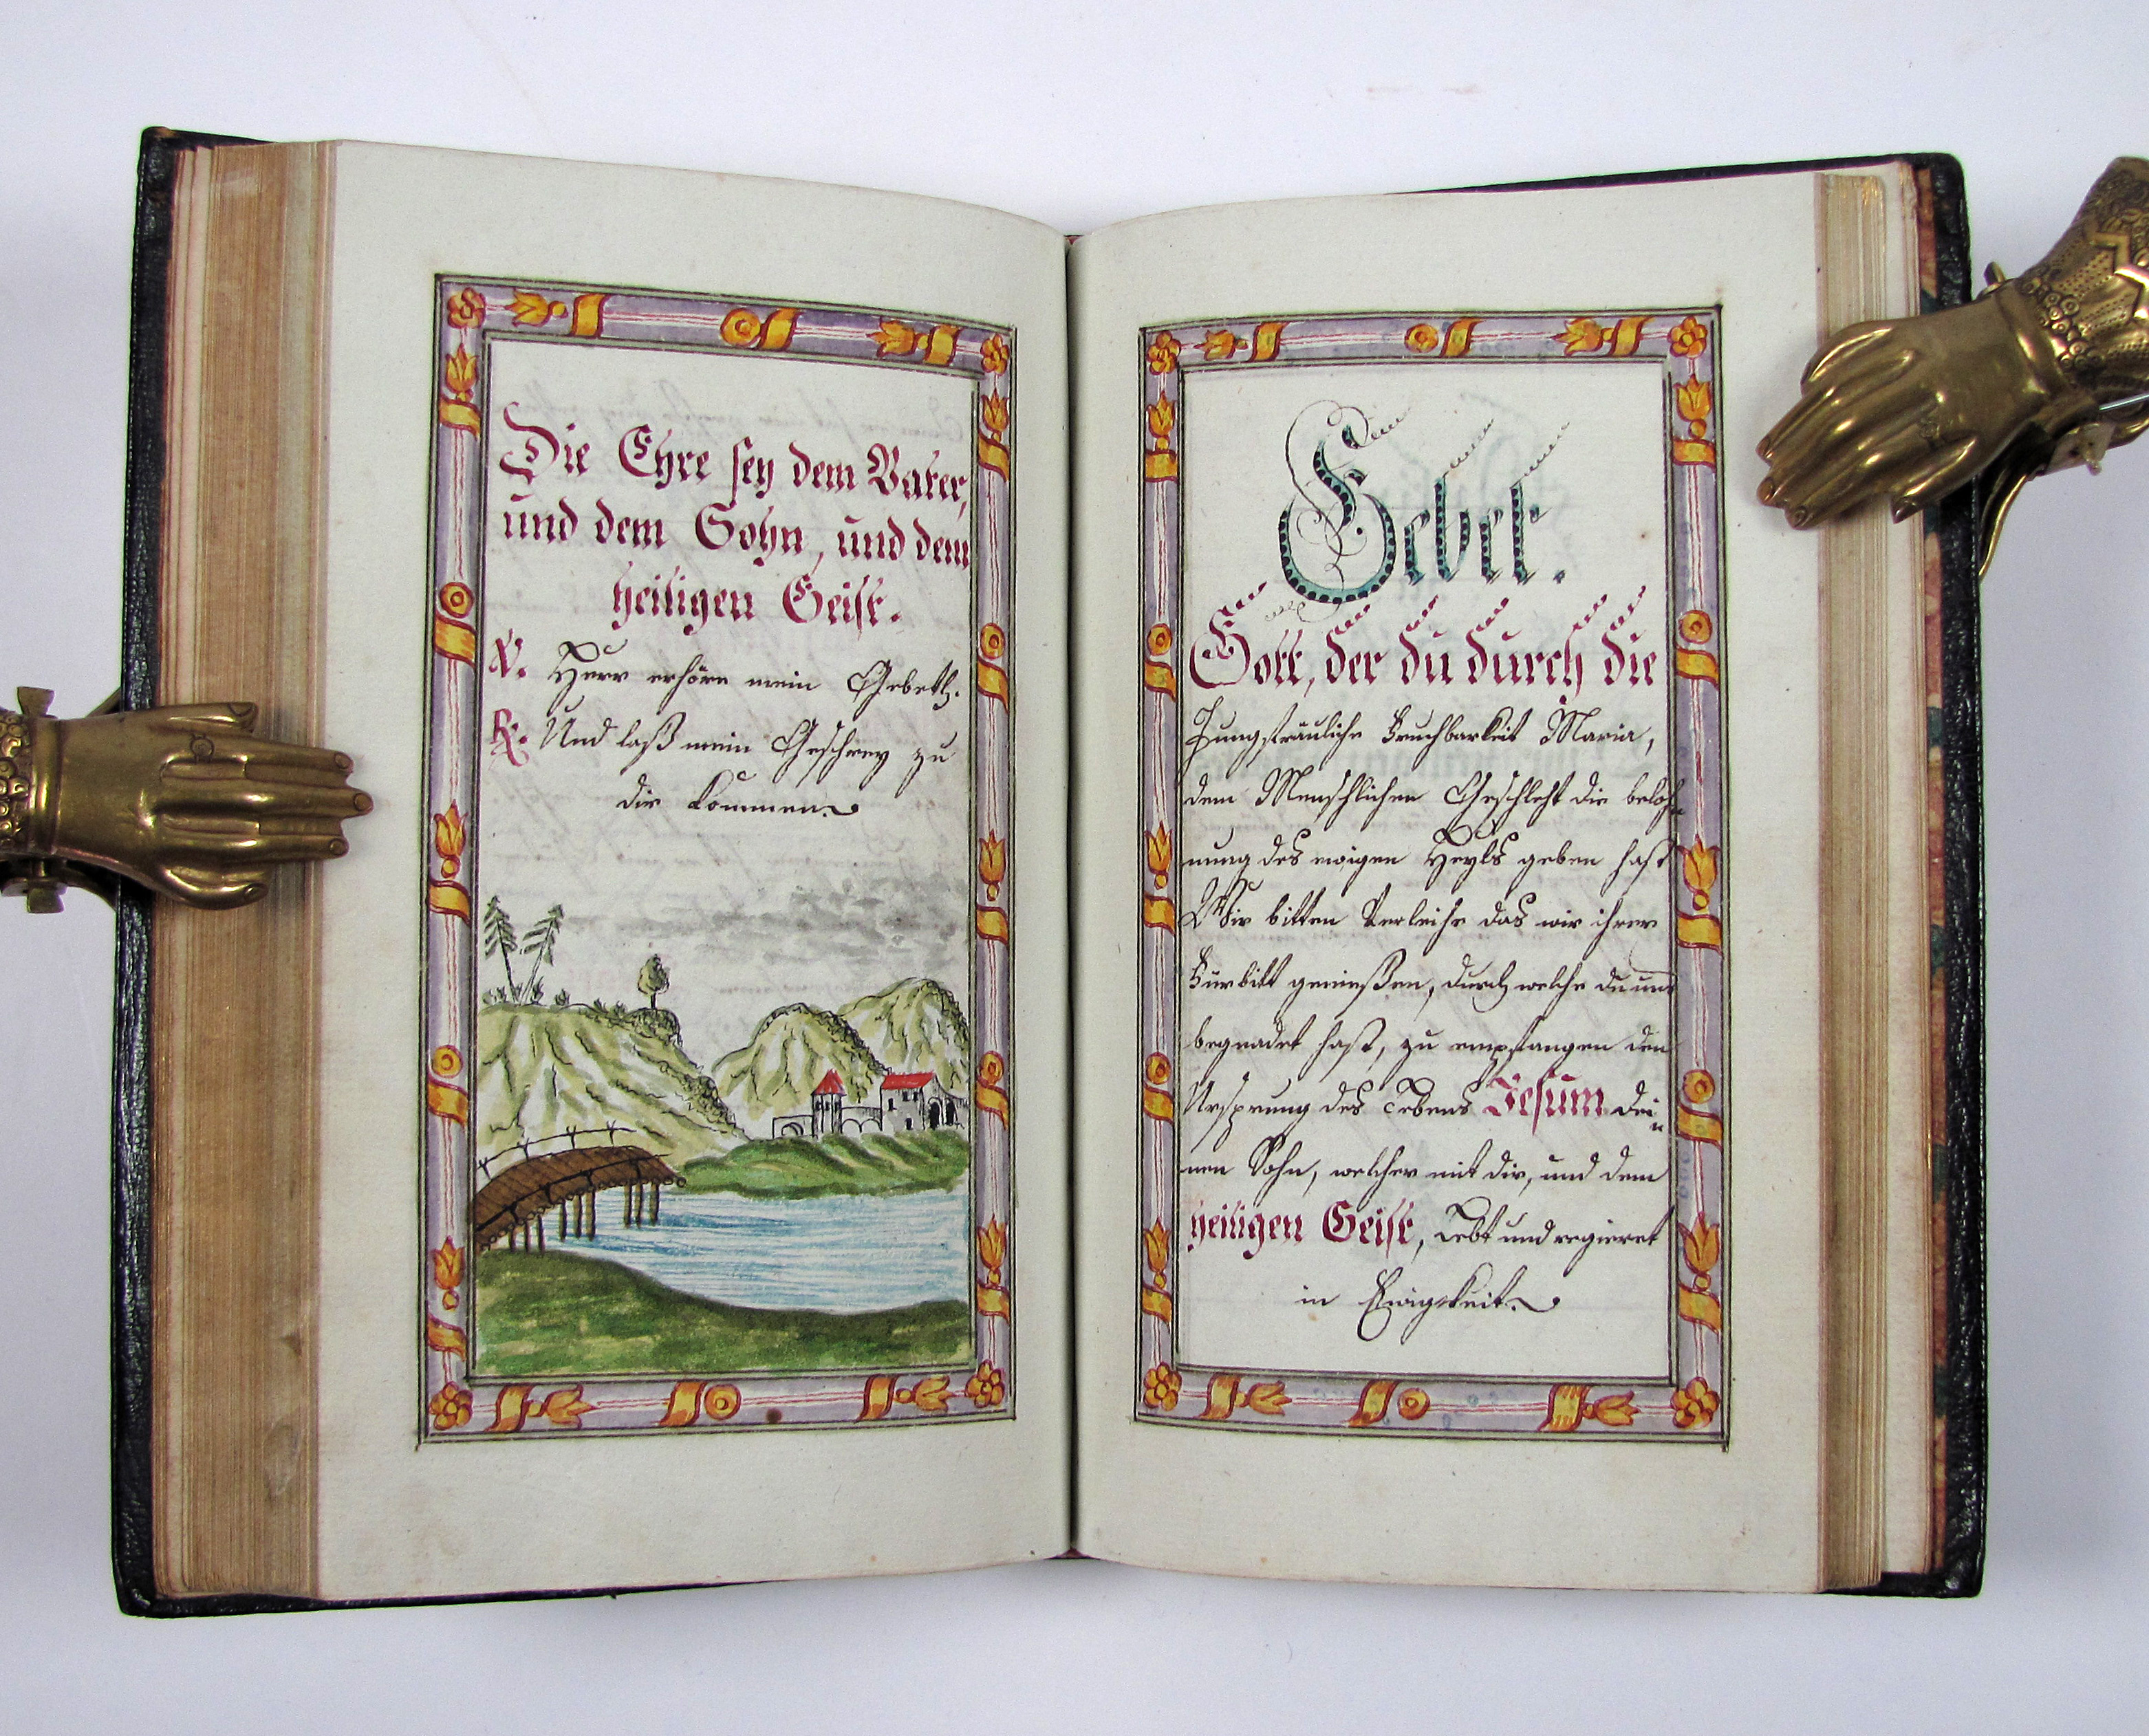 Die Ehre sey dem Vater,
und dem Sohn, und dem
heiligen Geist.
V. Herr erhöre mein Gebeth.
R. Und laß mein Geschrey zu
dir kommen.
Gebet.
Gott, der du durch die
Jungfräuliche Fruchbarkeit Maria,
dem Menschlichen Geschleht die beloh=
nung des ewigen Heyls geben hast
Wir bitten Verleihe das wir ihrer
Fürbitt genießen, durch welche du uns
begnadet hast, zu empfangen den
Ursprung des Lebens Jesum dei=
nen Sohn, welcher mit dir, und dem
heiligen Geist, Lebt und regieret
in Ewigkeit.